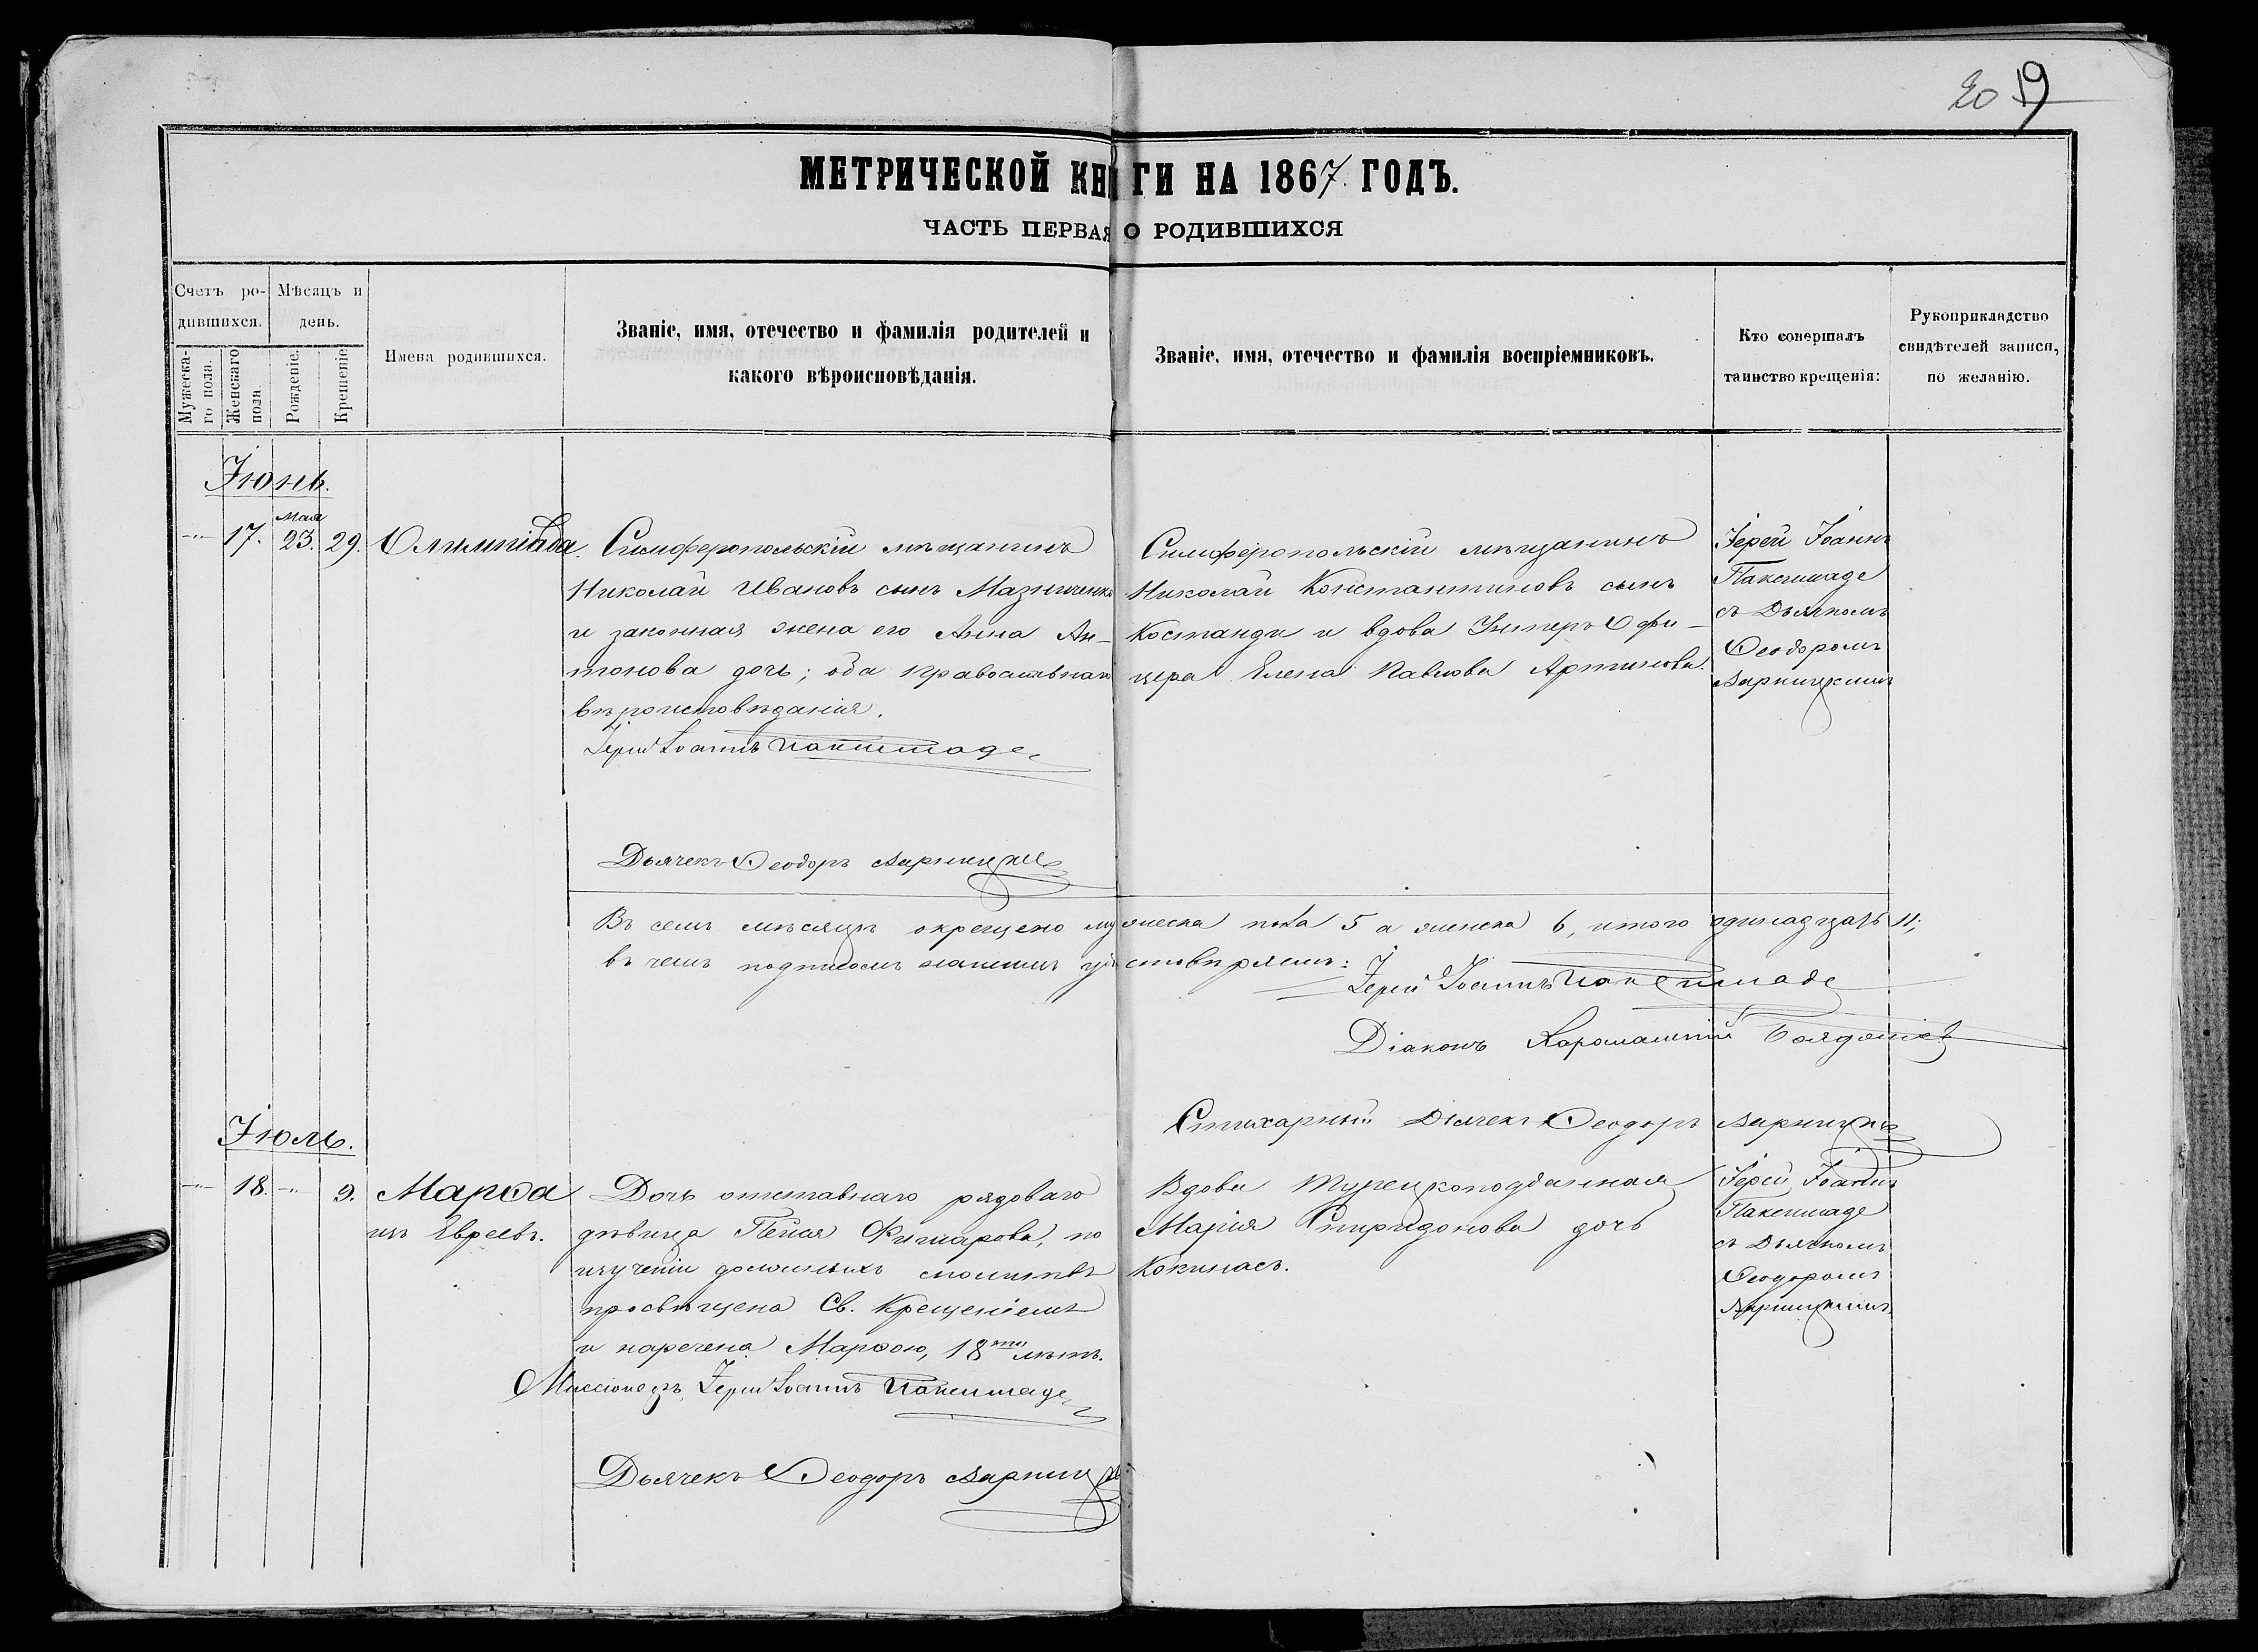 20 19
МЕТРИЧЕСКОЙ КНИГИ НА 1867. ГОДЪ.
ЧАСТЬ ПЕРВАЯ О РОДИВШИХСЯ
Счетъ ро-
дившихся.
Мѣсяцъ и
день.
Мужеска-
го пола.
Женскаго
пола
Рожденіе.
Крещеніе
Имена родившихся.
Званіе, имя, отечество и фамилія родителей и
какого вѣроисповѣданія.
Званіе, имя, отечество и фамилія воспріемниковъ.
Кто совершалъ
таинство крещенія:
Рукоприкладство
свидѣтелей записи,
по желанію.
Іюнь.
17. Мая 23. 29. Олимпіада.
Симферопольскій мѣщанинъ
Николай Ивановъ сынъ
и законная жена его Анна Ан-
тонова дочь; оба православнаго
вѣроисповѣданія.
Іерей Іоаннъ Пакишаде
Дьячекъ Ѳеодоръ Варницкій
Симферопольскій мѣщанинъ
Николай Константиновъ сынъ
Костанди и вдова Унтеръ Офи-
цера Елена Павлова
Іерей Іоаннъ
Пакишаде
съ Дьячкомъ
Ѳеодоромъ
Варницкимъ
Въ семъ мѣсяцѣ окрещено мужеска пола 5 а женска 6, итого одинадцать 11;
въ чемъ подписомъ нашимъ удостовѣряемъ:
Іерей Іоаннъ Пакишаде
Діаконъ
Стихарный Дьячекъ Ѳеодоръ Варницкій
Іюль.
18. 9. Марѳа
изъ Евреевъ.
Дочь отставнаго рядоваго
дѣвица Пейся по
изученіи должныхъ молитвъ
просвѣщена Св. Крещеніемъ
и наречена Марѳою, 18ти лѣтъ.
Миссіонеръ, Іерей Іоаннъ Пакишаде
Дьячекъ Ѳеодоръ Варницкій
Вдова Турецкоподданная
Марія Спиридонова дочь
Кокинасъ.
Іерей Іоаннъ
Пакишаде
съ Дьячкомъ
Ѳеодоромъ
Варницкимъ